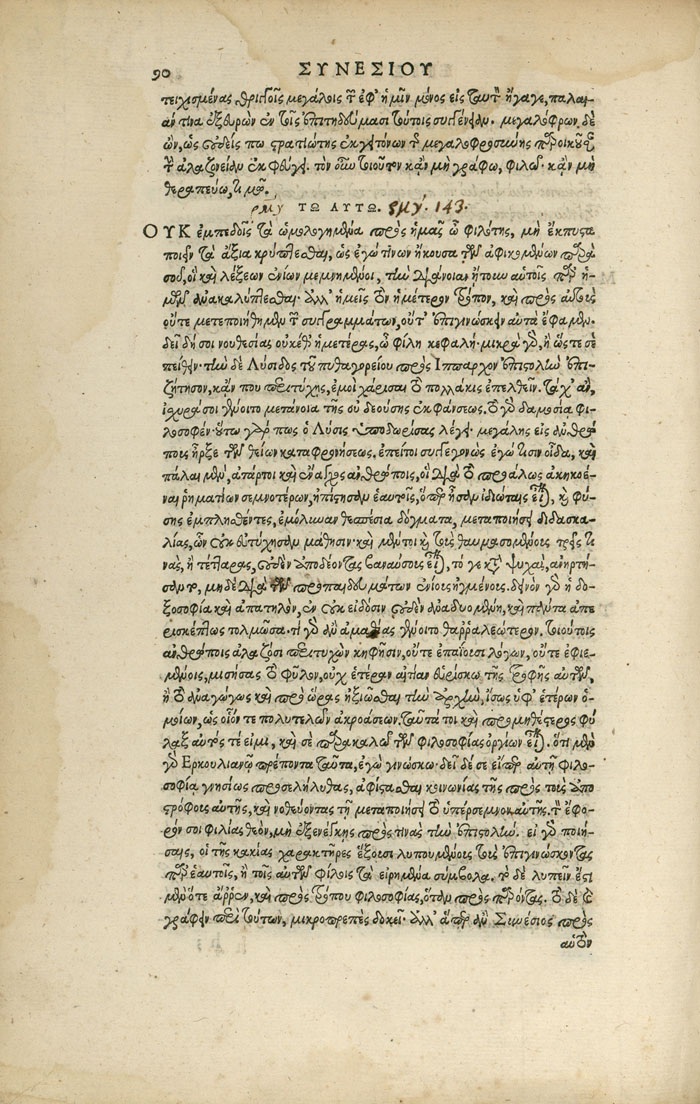 90 ΣΥΝΕΣΙΟΥ
τειχισμένας θριγγοῖς μεγάλοις τοῦ ἐφ' ἡμῖν μένος εἰς ταυτὸ ἤγαγε, παλαι-
ὰν τινα ὀξυβρων ἐν τοῖς ἐπιτηδεύμασι τούτοις συγγένειαν. μεγαλόφρων δὲ
ὢν, ὡς οὐδείς πω στρατιώτης ἐκ γειτόνων τῇ μεγαλοφροσύνης παροικοῦσαν
τοῦ ἀλαζονείαν ἐκφεύγει. τὸν οὖν τοιοῦτον κἂν μὴ γράφω, φιλῶ· κἂν μὴ
θεραπεύω, τιμῶ.
ρμγʹ ΤΩ ΑΥΤΩ. ρμγʹ. 143.
ΟΥΚ ἐμπεδοῖς τὰ ὡμολογημένα πρὸς ἡμᾶς ὦ φιλότης, μὴ ἔκπυστα
ποιεῖν τὰ ἄξια κρύπτεσθαι, ὡς ἐγώ τινων ἤκουσα τῶν ἀφικομένων παρὰ
σοῦ, οἳ καὶ λέξεων ἐνίων μεμνημένοι, τὴν διάνοιαν ἤτουν αὐτοῖς παρ' ἡ-
μῶν ἀνακαλύπτεσθαι. ἀλλ' ἡμεῖς τὸν ἡμέτερον τρόπον, καὶ πρὸς αὐτοὺς
οὔτε μετεποιήθημεν τῶν συγγραμμάτων, οὔτ' ἐπιγινώσκειν αὐτὰ ἔφαμεν.
δεῖ δή σοι νουθεσίας οὐκέθ' ἡμετέρας, ὦ φίλη κεφαλή· μικρὰ γὰρ, ἢ ὥστε σὲ
πείθειν· τὴν δὲ Λύσιδος τοῦ πυθαγορείου πρὸς Ἵππαρχον ἐπιστολὴν ἐπι-
ζήτησον, κἄν που περιτύχῃς, ἐμοὶ χάρισαι τὸ πολλάκις ἐπελθεῖν. τάχ' ἂν,
ἰσχυρά σοι γένοιτο μετάνοια τῆς οὐ δεούσης ἐκφάνσεως. τὸ γὰρ δαμοσίᾳ φι-
λοσοφὲν· οὕτω γάρ πως ὁ Λῦσις ὑποδωρίσας λέγει· μεγάλης εἰς ἀνθρώ-
ποις ἦρξε τῶν θείων καταφρονήσεως. ἐπεί τοι συγγεγονὼς ἐγώ τισιν οἶδα, καὶ
πάλαι μὲν, ἀπάρτι καὶ ἔναγχος ἀνθρώποις, οἳ διὰ τὸ προάλως ἀκηκοέ-
ναι ῥηματίων σεμνοτέρων, ἠπίστησαν ἑαυτοῖς, ὅπερ ἦσαν ἰδιώταις εἶναι, καὶ φύ-
σης ἐμπλησθέντες, ἐμόλυναν θεσπέσια δόγματα, μεταποιήσει διδασκα-
λίας, ὧν οὐκ εὐτύχησαν μάθησιν· καὶ μέντοι καὶ τοὺς θαυμασομένους τρεῖς τι-
νὰς, ἢ τέτταρας, οὐδὲν ἀποδέοντας βαναύσοις εἶναι, τό γε κατὰ ψυχὰς, ἀνηρτή-
σαντο, μηδὲ διὰ τῶν προπαιδευμάτων ἐνίοις ἠγμένοις. δεινὸν γὰρ ἡ δο-
ξοσοφία καὶ ἀπατηλὸν, ἐν οὐκ εἰδόσιν οὐδὲν ἀναδυομένη, καὶ πάντα ἀπε-
ρισκέπτως τολμῶσα. τί γὰρ ἂν ἀμαθίας γένοιτο θαρραλεώτερον. τοιούτοις
ἀνθρώποις ἀλαζόσι περιτυχὼν κηφῆσιν, οὔτε ἐπαΐουσι λόγων, οὔτε ἐφιε-
μένοις, μισήσας τὸ φῦλον, οὐχ ἑτέραν αἰτίαν εὑρίσκω τῆς τροφῆς αὐτῶν,
ἢ τὸ ἀναγώγως καὶ πρὸ ὥρας ἠξιῶσθαι τὴν ἀρχὴν, ἴσως ὑφ' ἑτέρων ὁ-
μοίων, ὡς οἷόν τε πολυτελῶν ἀκροάσεων. ταῦτά τοι καὶ προμηθέστερος φύ-
λαξ αὐτός τέ εἰμι, καὶ σὲ παρακαλῶ τῶν φιλοσοφίας ὀργίων εἶναι. ὅτι μὲν
γὰρ Ἑρκουλιανῷ πρέποντα ταῦτα, ἐγὼ γινώσκω· δεῖ δέ σε εἴπερ αὐτῇ φιλο-
σοφίᾳ γνησίως προσελήλυθας, ἀφίστασθαι κοινωνίας τῆς πρὸς τοὺς ἀπο-
στρόφους αὐτῆς, καὶ νοθεύοντας τῇ μεταποιήσει τὸ ὑπέρσεμνον αὐτῆς. τὸν ἔφο-
ρόν σοι φιλίας θεὸν, μὴ ἐξενέγκῃς πρός τινας τὴν ἐπιστολήν. εἰ γὰρ ποιή-
σαις, οἱ τῆς κακίας χαρακτῆρες ἕξουσι λυπουμένους τοὺς ἐπιγνώσκοντας
παρ' ἑαυτοῖς, ἢ τοῖς αὐτῶν φίλοις τὰ εἰρημένα σύμβολα. τὸ δὲ λυπεῖν ἔστι
μὲν ὅτε ἄρρεν, καὶ πρὸς τρόπου φιλοσοφίας, ὅταν πρὸς παρόντας. τὸ δὲ καὶ
γράφειν περὶ τούτων, μικροπρεπὲς δοκεῖ. ἀλλ' ἅπερ ἂν Συνέσιος πρὸς
αὑτὸν